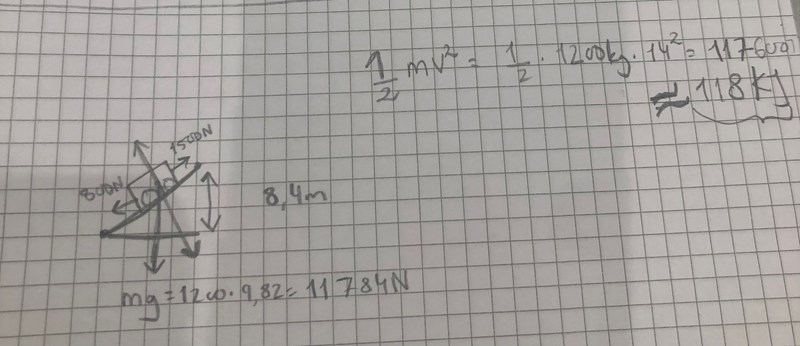 1/2 mv² = 1/2 · 1200kg · 14² = 117600J
≈ 118kJ
1500N
800N
8,4m
mg = 1200 · 9,82 = 11784N